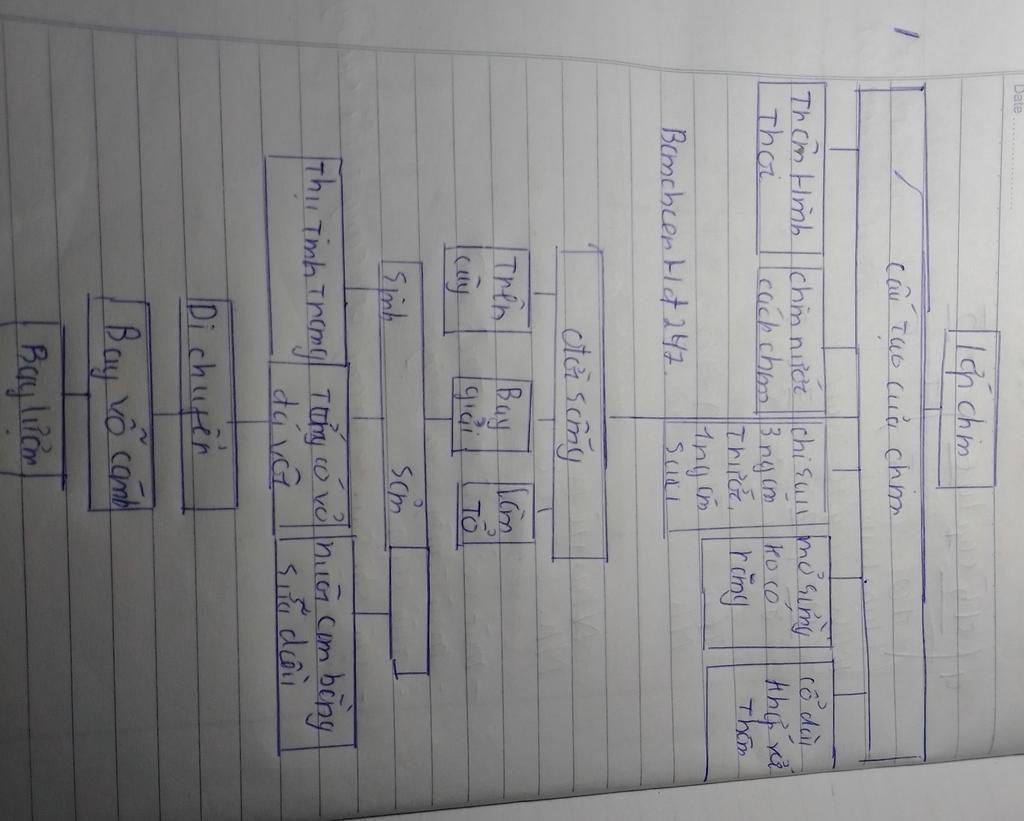 Date
1
lớp chim
cấu tạo của chim
Thân Hình
Thoi
chim nước
cách chim
chi sau
3 ngón
Trước,
1 ngón
Sau
mỏ sừng
Ko có
răng
cổ dài
Khớp với
Thân
Bomchcentld 247.
đời sống
Trên
cây
Bay
giỏi
làm
Tổ
Sinh Sản
Thụ Tinh Trong
Trứng có vỏ
đá vôi
nuôi con bằng
sữa diều
Di chuyển
Bay vỗ cánh
Bay lượn